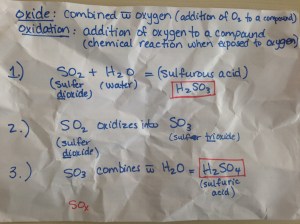 oxide: combined w̄ oxygen (addition of O₂ to a compound)
oxidation: addition of oxygen to a compound
(chemical reaction when exposed to oxygen)
1.) SO₂ + H₂O = (sulfurous acid)
(sulfer (water) H₂SO₃
dioxide)
2.) SO₂ oxidizes into SO₃
(sulfer (sulfer trioxide)
dioxide)
3.) SO₃ combines w̄ H₂O = H₂SO₄
(sulfuric
acid)
SO₂